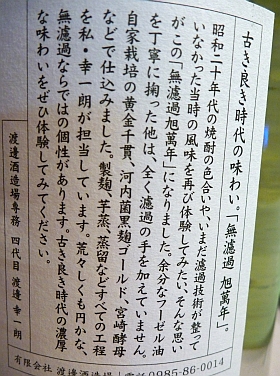 古き良き時代の味わい。「無濾過 旭萬年」。
昭和二十年代の焼酎の色合いや、いまだ濾過技術が整って
いなかった当時の風味を再び体験してみたい、そんな思い
がこの「無濾過旭萬年」になりました。余分なフーゼル油
を丁寧に掬った他は、全く濾過の手を加えていません。
自家栽培の黄金千貫、河内菌黒麹ゴールド、宮崎酵母
などで仕込みました。製麹、芋蒸、蒸留などすべての工程
を私・幸一朗が担当しています。荒々しくも円かな、
無濾過ならではの個性があります。古き良き時代の濃厚
な味わいをぜひ体験してみてください。
渡邊酒造場専務 四代目 渡邊幸一朗
有限会社 渡邊酒造場 電話0985-86-0014